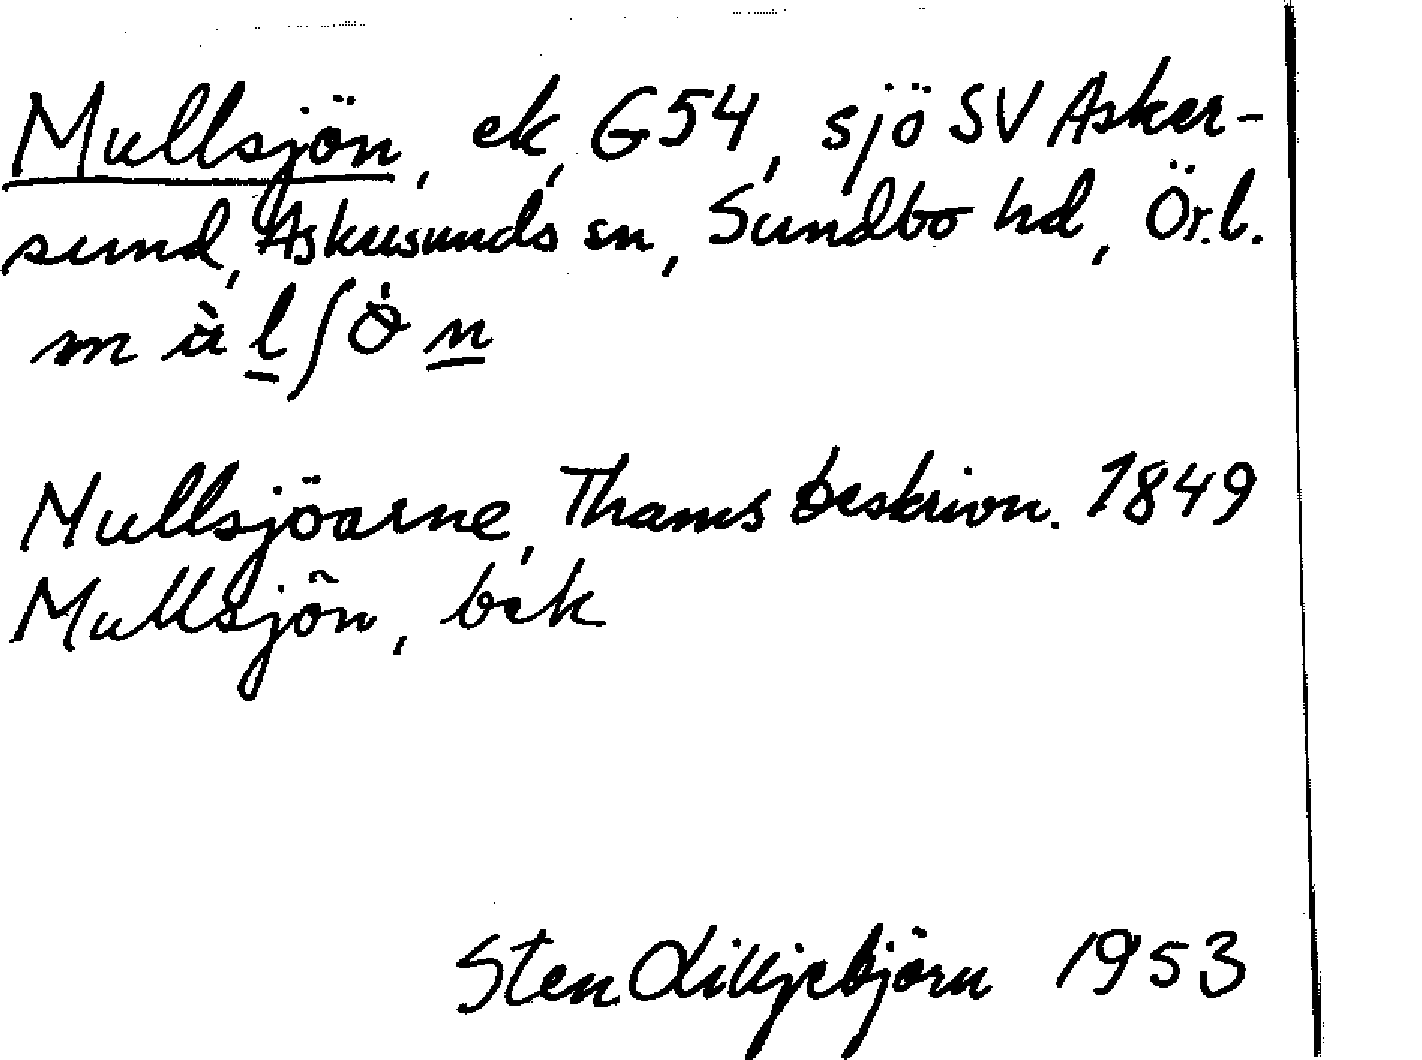 Mullsjön, ek, G54, sjö SV Asker-
sund, Askersunds sn, Sundbo hd, Ör.l.
m ù l ʃ ö̀ n
Mullsjöarne, Thams beskrivn. 1849
Mullsjön, bek
Sten Liljebjörn 1953